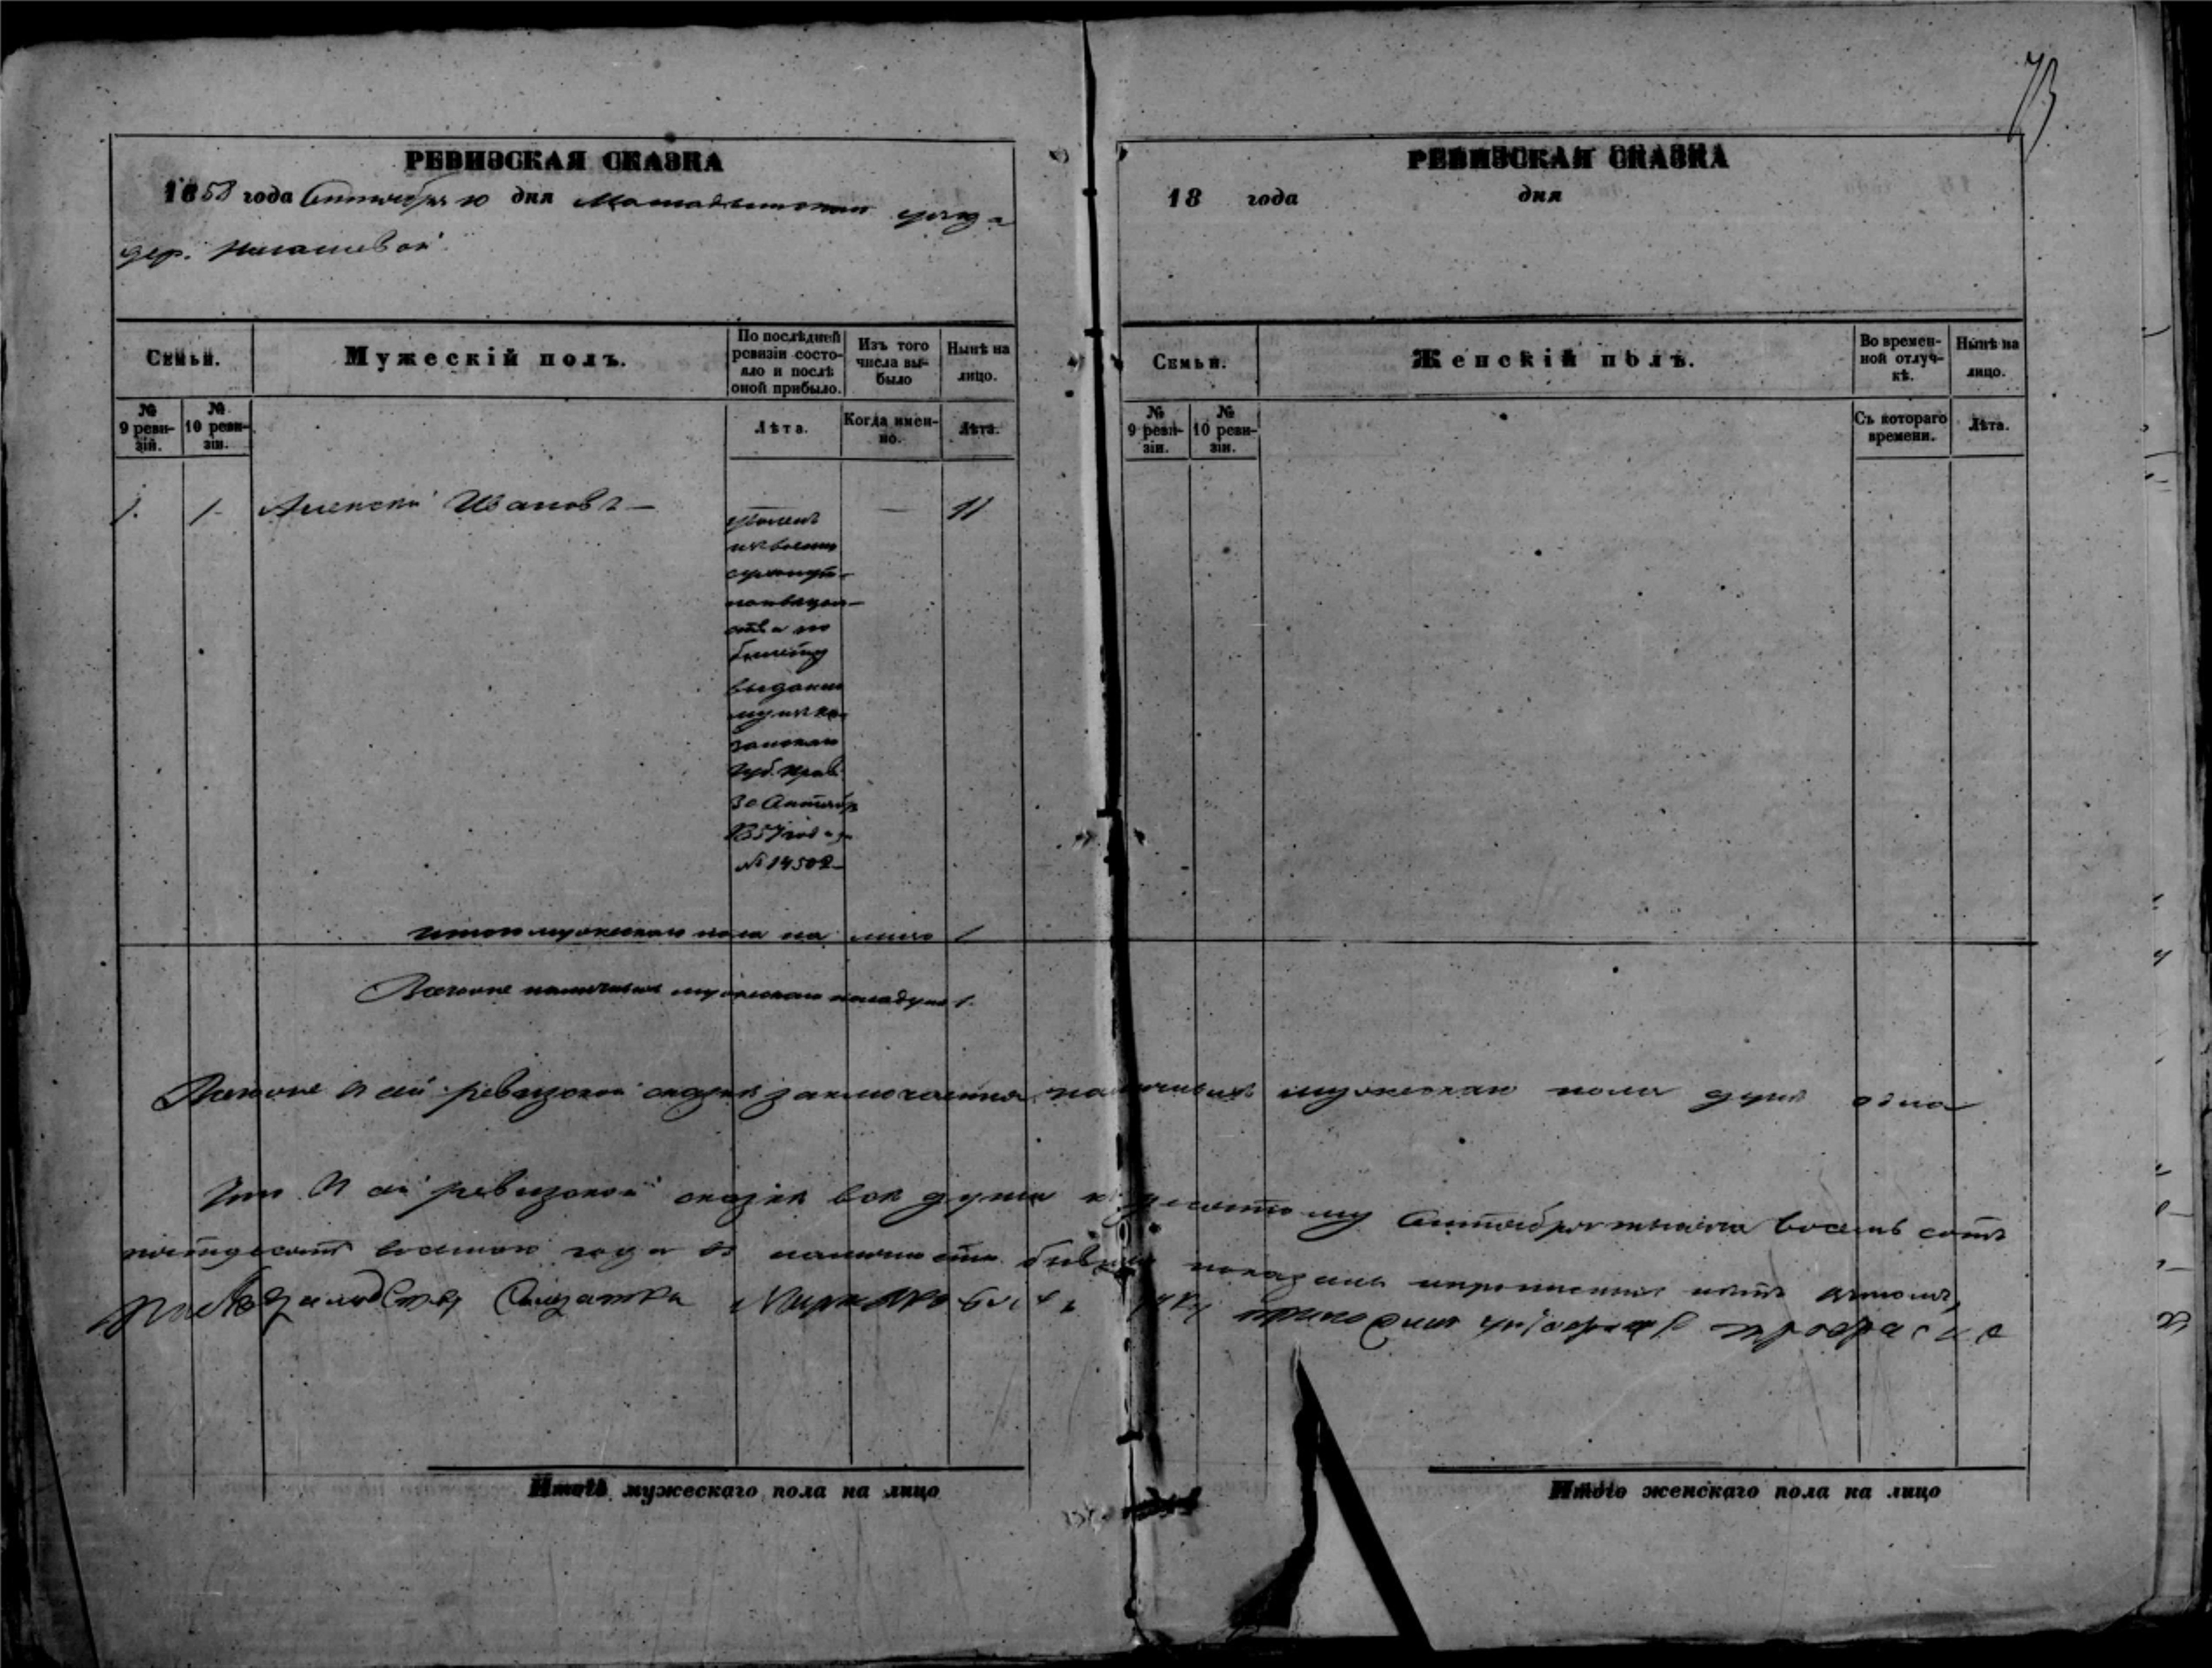 73
РЕВИЗСКАЯ СКАЗКА
1858 года Октября 10 дня Мамадышскаго уезда
дер.
Семьи.
Мужескій полъ.
По послѣдней ревизіи состояло и послѣ оной прибыло.
Изъ того числа выбыло
Нынѣ на лицо.
№ 9 ревизіи.
№ 10 ревизіи.
Лѣта.
Когда именно.
Лѣта.
1. 1. Алексѣй Ивановъ — — 11
уволенъ
изъ военно
по
билету
выданно
му изъ Ка
занскаго
Губ. Прав.
30 Октября
1857 года за
№ 14502
Итого мужескаго пола на лицо 1
Всего наличныхъ мужескаго пола душъ 1.
Всего въ сей ревизской сказкѣ заключается наличныхъ мужескаго пола душа одна
Что въ сей ревизской сказкѣ всѣ души къ десятому Октября тысяча восемь сотъ
пятьдесятъ восьмаго года въ наличности бывшія показаны и прописныхъ нѣтъ въ томъ,
Итого мужескаго пола на лицо
РЕВИЗСКАЯ СКАЗКА
18 года дня
Семьи.
Женскій полъ.
Во временной отлучкѣ.
Нынѣ на лицо.
№ 9 ревизіи.
№ 10 ревизіи.
Съ котораго времени.
Лѣта.
Итого женскаго пола на лицо